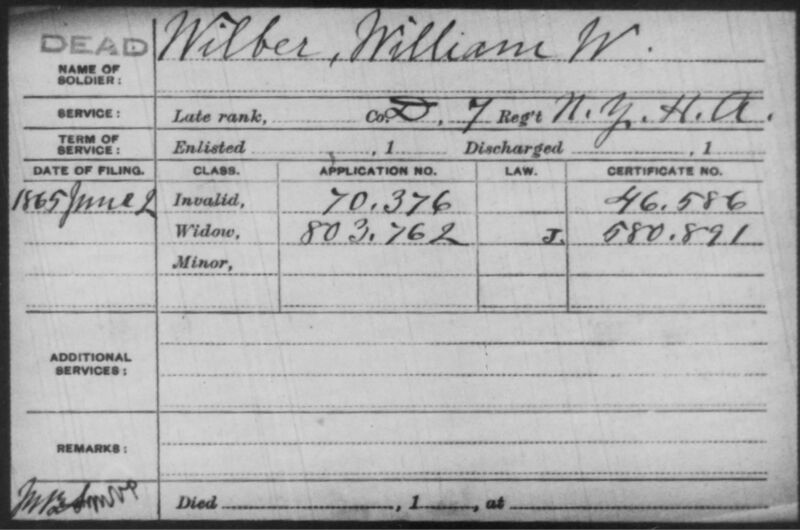 DEAD Wilber, William W.
NAME OF SOLDIER:
SERVICE: Late rank, Co. D, 7 Reg't N.Y. H.A.
TERM OF SERVICE: Enlisted , 1 Discharged , 1
DATE OF FILING. CLASS. APPLICATION NO. LAW. CERTIFICATE NO.
1865 June 2 Invalid, 70.376 46.586
Widow, 803.762 J. 580.891
Minor,
ADDITIONAL SERVICES:
REMARKS:
Died , 1 , at